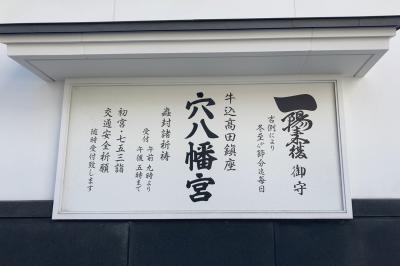 一陽来復 御守
古例により
冬至〜節分迄毎日
牛込高田鎮座
穴八幡宮
蟲封諸祈祷
受付 午前九時より
午後五時まで
初宮・七五三詣
交通安全祈願
随時受付致します